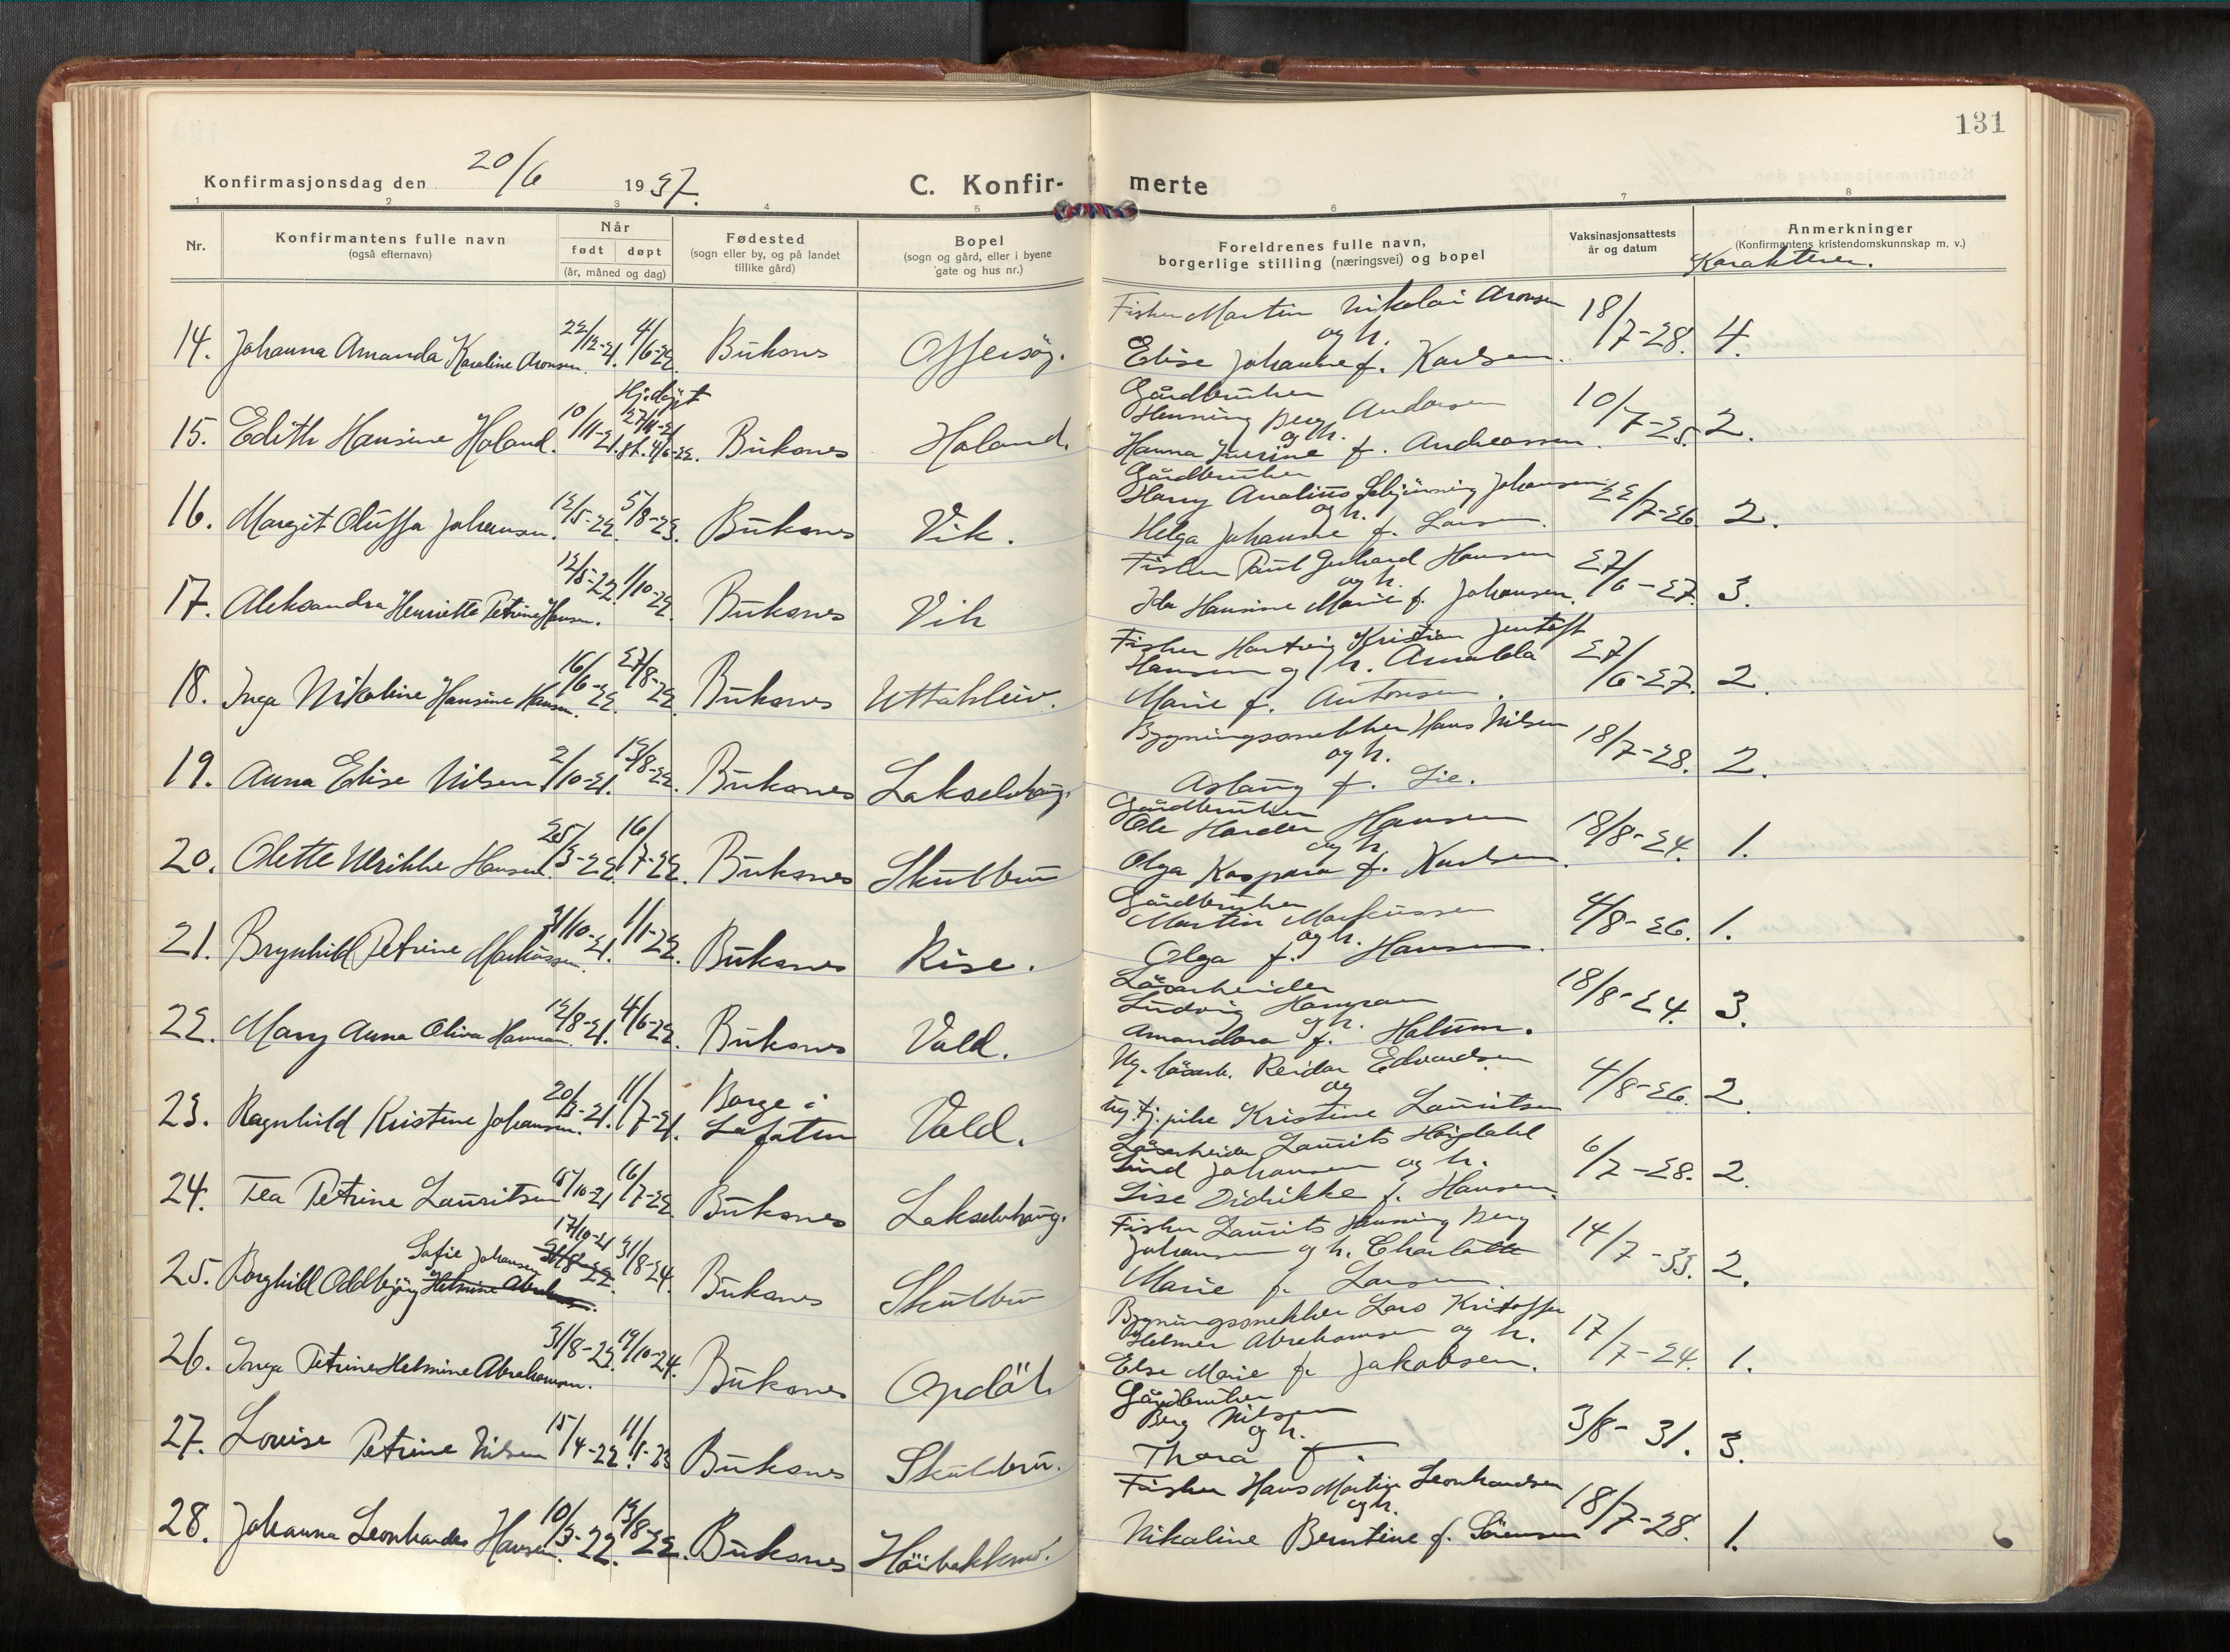 131
Konfirmasjonsdag den 20/6 1937.
C. Konfir- merte
1 2 3 4 5 6 7 8
Nr.
Konfirmantens fulle navn
(også efternavn)
Når
født døpt
(år, måned og dag)
Fødested
(sogn eller by, og på landet
tillike gård)
Bopel
(sogn og gård, eller i byene
gate og hus nr.)
Foreldrenes fulle navn,
borgerlige stilling (næringsvei) og bopel
Vaksinasjonsattests
år og datum
Anmerkninger
(Konfirmantens kristendomskunnskap m. v.)
Karakterer.
14. Johanna Amanda Karoline Aronsen. 22/12-21. 4/6-22. Buksnes Offersøy.
Fisker Martin Nikolai Aronsen
og h.
Elise Johanne f. Karlsen. 18/7-28. 4.
15. Edith Hansine Holand. 10/11-21. Hj.døpt 27/11-21 st. 4/6-22. Buksnes Holand.
Gårdbruker
Henning Berg Andersen
og h.
Hanna Iverine f. Andreassen. 10/7-28. 2.
16. Margit Oluffa Johansen. 12/5-22. 5/8-23. Buksnes Vik.
Gårdbruker
Harry Analius Johansen
og h.
Helga Johanne f. Larsen. 22/7-26. 2.
17. Aleksandra Henriette Petrine Hansen. 12/5-22. 1/10-22. Buksnes Vik
Fisker Paul Gerhard Hansen
og h.
Ida Hansine Marie f. Johansen. 27/6-27. 3.
18. Inga Nikoline Hansine Hansen. 16/6-22. 27/8-22. Buksnes Uttakleiv.
Fisker Hartvig Kristian Jentoft
Hansen og h. Amalda
Marie f. Antonsen. 27/6-27. 2.
19. Anna Elise Nilsen 2/10-21. 13/8-22. Buksnes Lakselvhaug.
Bygningssnekker Hans Nilsen
og h.
Aslaug f. Lie. 18/7-28. 2.
20. Olette Ulrikke Hansen. 25/3-22. 16/7-22. Buksnes Skulbru
Gårdbruker
Ole Harder Hansen
og h.
Olga Kaspara f. Karlsen. 18/8-24. 1.
21. Brynhild Petrine Markussen. 31/10-21. 1/1-22. Buksnes Rise.
Gårdbruker
Martin Markussen
og h.
Olga f. Hansen. 4/8-26. 1.
22. Mary Anna Oliva Hansen. 12/8-21. 4/6-22. Buksnes Vold.
Løsarbeider
Ludvig Hansen
og h.
Amandora f. Holum. 18/8-24. 3.
23. Ragnhild Kristine Johansen. 20/3-21. 11/7-21. Borge i
Lofoten Vold.
Ug. løsarb. Reidar Edvardsen
og
ug. tj.pike Kristine Lauritsen 4/8-26. 2.
24. Tea Petrine Lauritsen 15/10-21 16/7-22. Buksnes Lakselvhaug.
Løsarbeider Laurits Høigdahl
Lind Johansen og h.
Lise Didrikke f. Hansen. 6/7-28. 2.
25. Borghild Oddbjørg Sofie Johansen Helmine Abrahamsen. 17/10-21 31/8-22. 31/8-24. Buksnes Skulbru
Fisker Laurits Henning Berg
Johansen og h. Charlotte
Marie f. Larsen. 14/7-33. 2.
26. Inga Petrine Helmine Abrahamsen. 31/8-23. 19/10-24. Buksnes Opdøl.
Bygningssnekker Lars Kristoffer
Helmer Abrahamsen og h.
Else Marie f. Jakobsen. 17/7-24. 1.
27. Lovise Petrine Nilsen 15/4-22. 11/1-23 Buksnes Skulbru.
Gårdbruker
Berg Nilsen
og h.
Thora f. 3/8-31. 3.
28. Johanna Leonhardes Hansen. 10/3-22. 13/8-22. Buksnes Höibakkmo.
Fisker Hans Martin Leonhardsen
og h.
Nikoline Berntine f. Sörensen 18/7-28. 1.